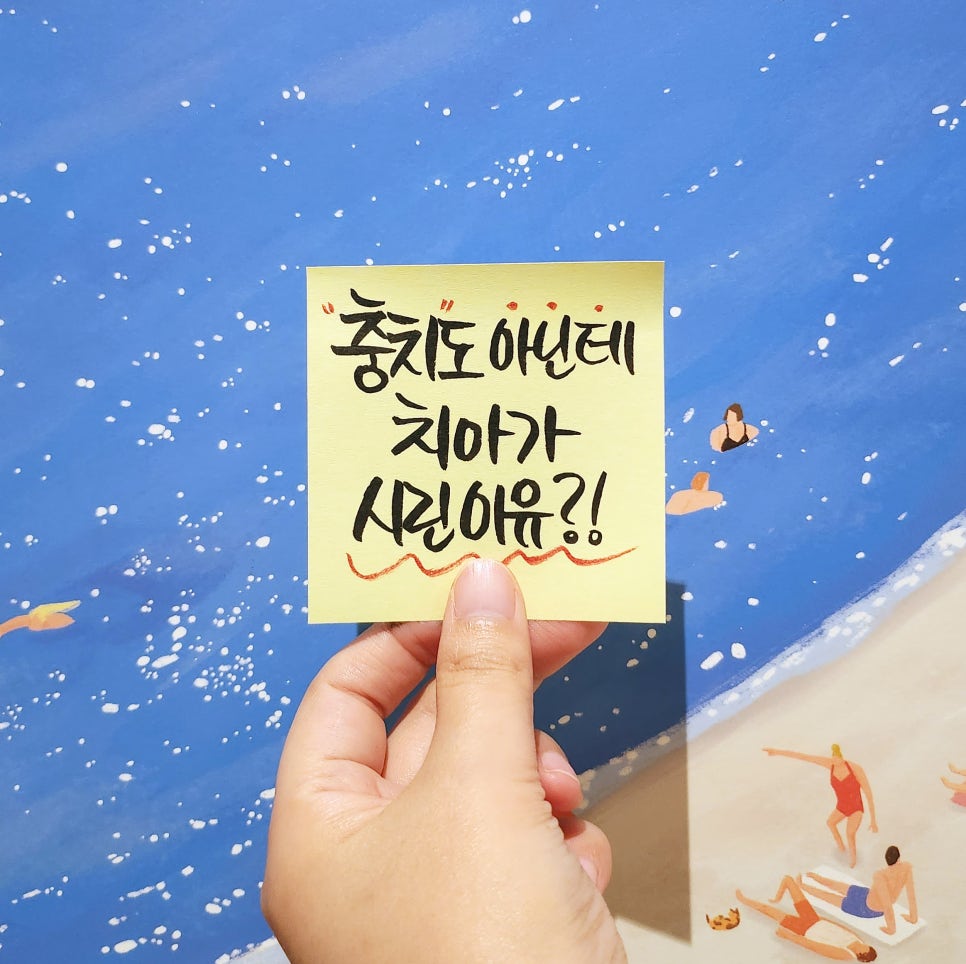 "충치"도 아닌데
치아가
시린이유?!